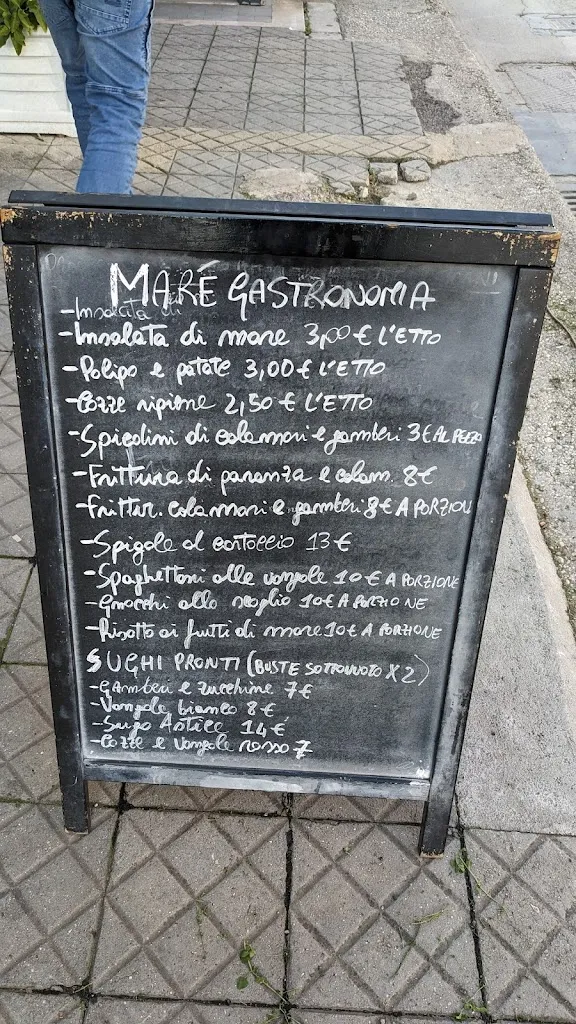 MARÉ GASTRONOMIA
- Insalata di
- Insalata di mare 3,00 € L'ETTO
- Polipo e patate 3,00 € L'ETTO
- Cozze ripiene 2,50 € L'ETTO
- Spiedini di calamari e gamberi 3 € AL PEZZO
- Frittura di paranza e calam. 8 €
- Frittur. calamari e gamberi 8 € A PORZION
- Spigola al cartoccio 13 €
- Spaghettoni alle vongole 10 € A PORZIONE
- Gnocchi allo scoglio 10 € A PORZIONE
- Risotto ai frutti di mare 10 € A PORZIONE
SUGHI PRONTI (BUSTE SOTTOVUOTO X 2)
- GAMberi e zucchine 7 €
- Vongole bianco 8 €
- Sugo Astice 14 €
- Cozze e vongole rosso 7